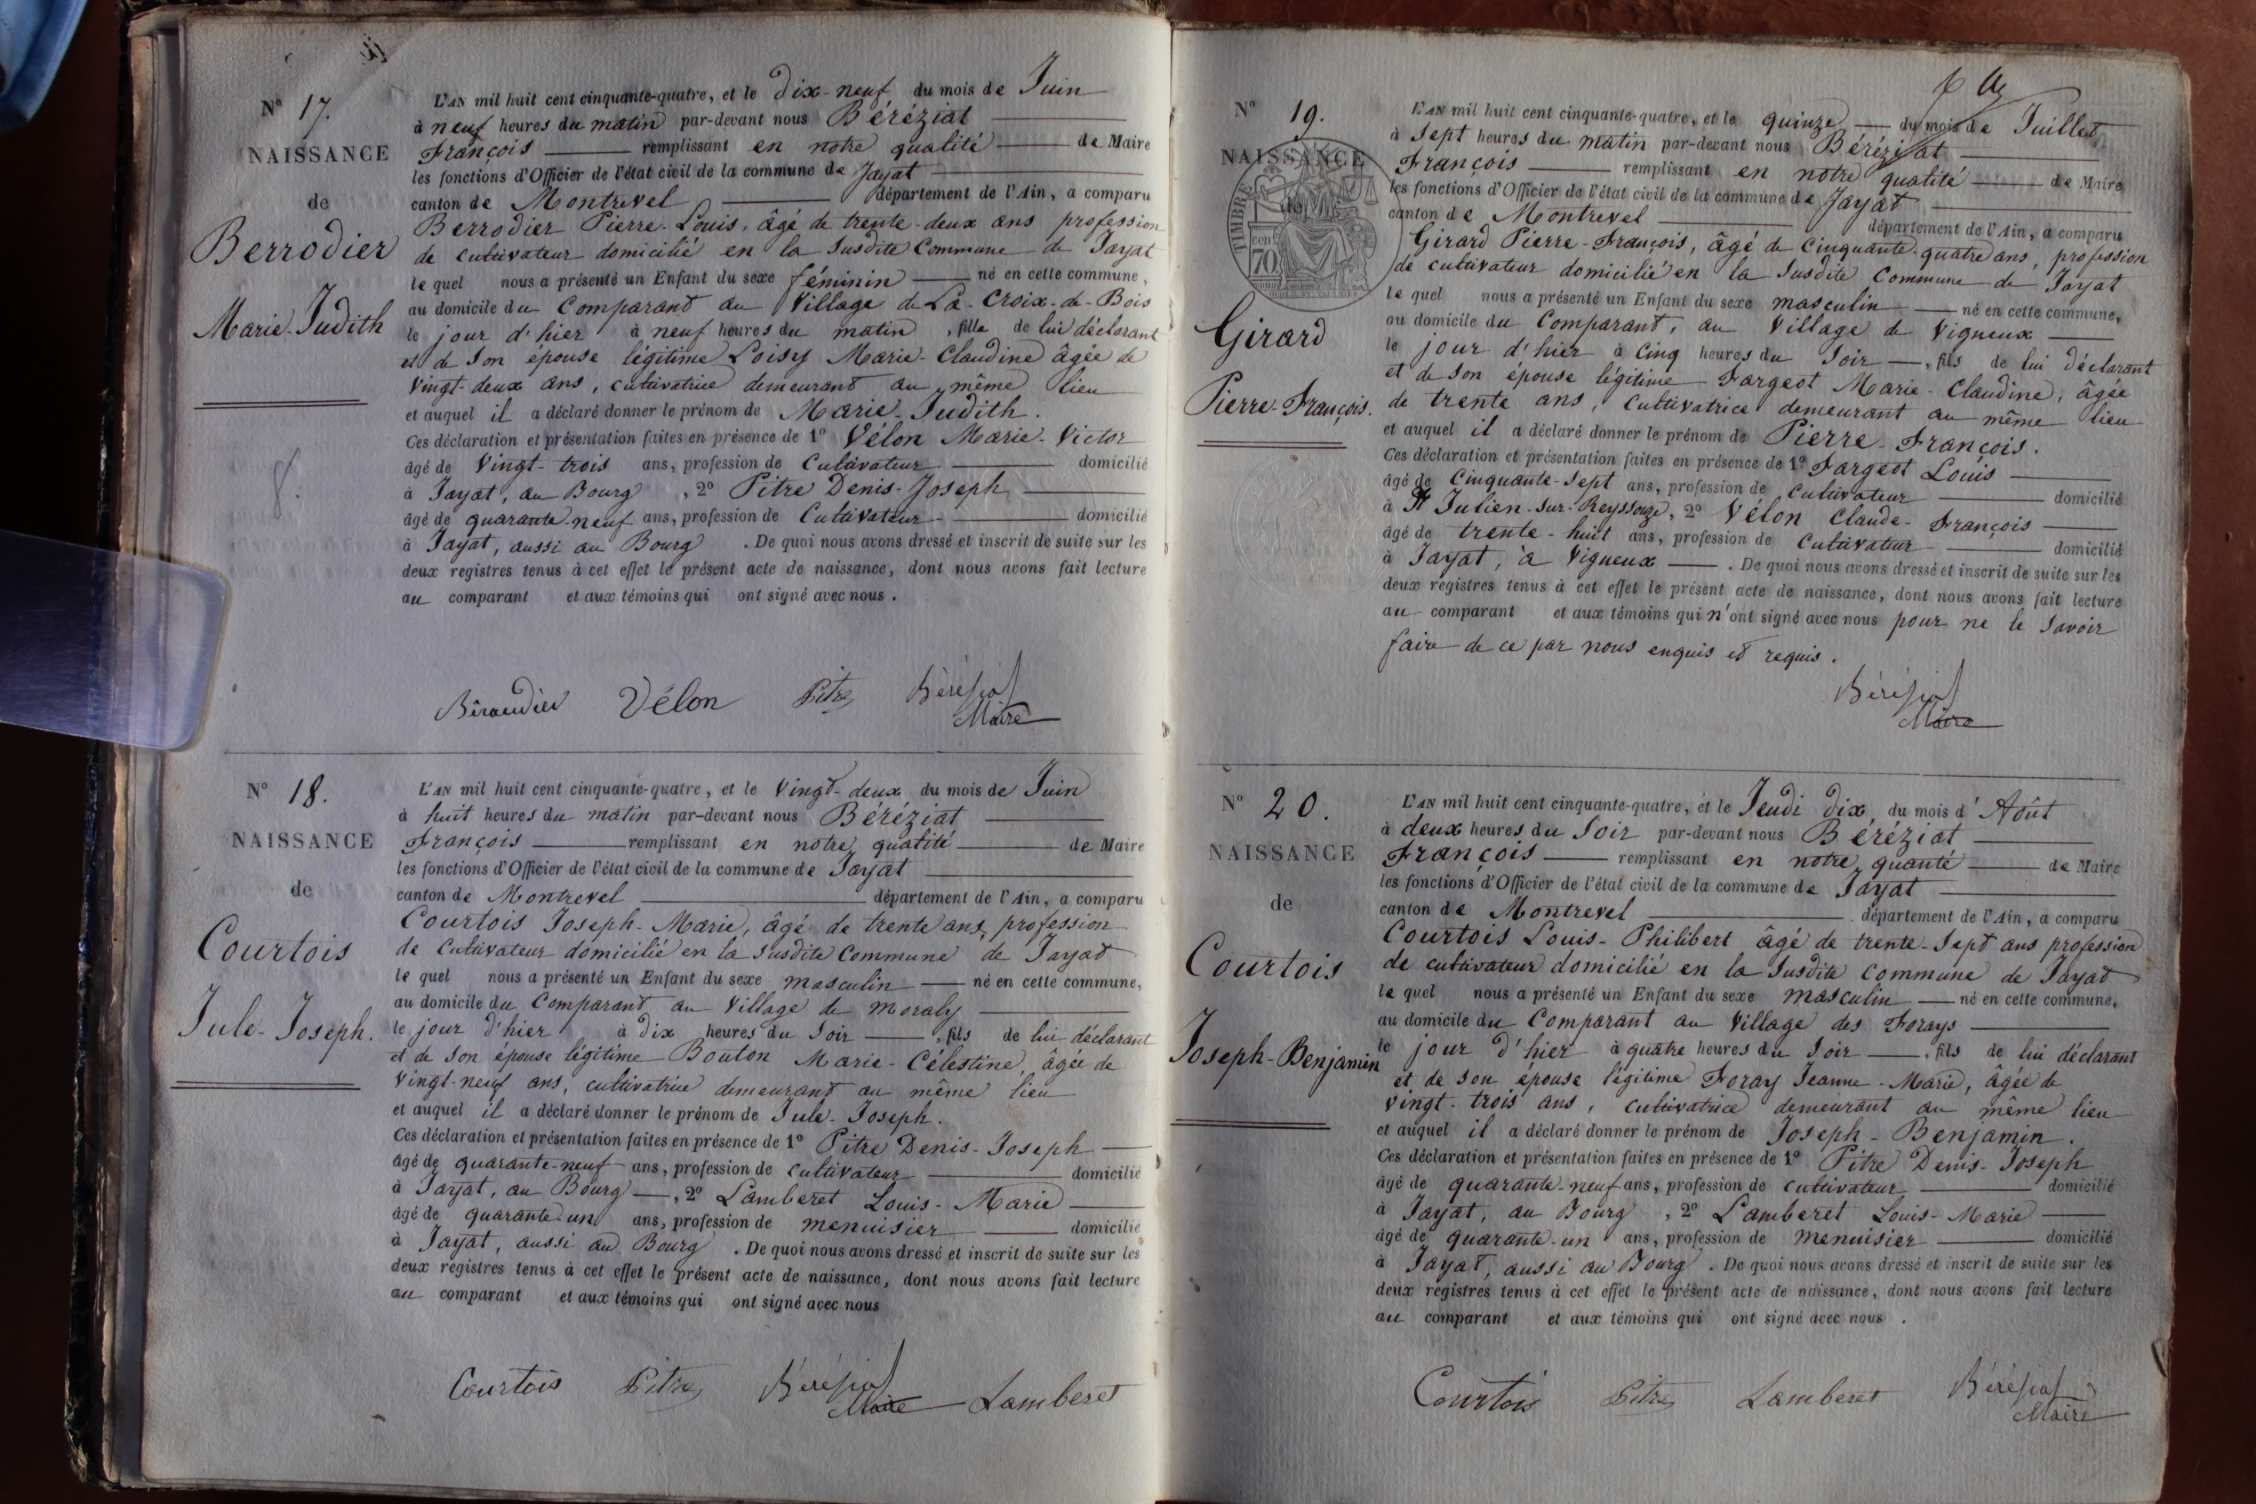 N° 17.
NAISSANCE
de
Berrodier
Marie-Judith
L'AN mil huit cent cinquante-quatre, et le dix-neuf du mois de Juin
à neuf heures du matin par-devant nous Béréziat
François remplissant en notre qualité de Maire
les fonctions d'Officier de l'état civil de la commune de Jayat
canton de Montrevel département de l'Ain, a comparu
Berrodier Pierre-Louis, âgé de trente-deux ans profession
de cultivateur domicilié en la susdite Commune de Jayat
le quel nous a présenté un Enfant du sexe féminin né en cette commune,
au domicile du Comparant au Village de La-Croix-de-Bois
le jour d'hier à neuf heures du matin, fille de lui déclarant
et de son épouse légitime Loisy Marie-Claudine âgée de
Vingt-deux ans, cultivatrice demeurant au même lieu
et auquel il a déclaré donner le prénom de Marie-Judith.
Ces déclaration et présentation faites en présence de 1° Vélon Marie-Victor
âgé de Vingt-trois ans, profession de Cultivateur domicilié
à Jayat, au Bourg, 2° Pitre Denis-Joseph
âgé de quarante-neuf ans, profession de Cultivateur domicilié
à Jayat, aussi au Bourg. De quoi nous avons dressé et inscrit de suite sur les
deux registres tenus à cet effet le présent acte de naissance, dont nous avons fait lecture
au comparant et aux témoins qui ont signé avec nous.
Béraudier Vélon Pitre Béréziat
Maire
N° 18.
NAISSANCE
de
Courtois
Jule-Joseph.
L'AN mil huit cent cinquante-quatre, et le Vingt-deux du mois de Juin
à huit heures du matin par-devant nous Béréziat
François remplissant en notre qualité de Maire
les fonctions d'Officier de l'état civil de la commune de Jayat
canton de Montrevel département de l'Ain, a comparu
Courtois Joseph-Marie, âgé de trente ans, profession
de Cultivateur domicilié en la susdite Commune de Jayat
le quel nous a présenté un Enfant du sexe masculin né en cette commune,
au domicile du Comparant au Village de Moraly
le jour d'hier à dix heures du soir, fils de lui déclarant
et de son épouse légitime Bouton Marie-Célestine, âgée de
Vingt-neuf ans, cultivatrice demeurant au même lieu
et auquel il a déclaré donner le prénom de Jule-Joseph.
Ces déclaration et présentation faites en présence de 1° Pitre Denis-Joseph
âgé de quarante-neuf ans, profession de cultivateur domicilié
à Jayat, au Bourg, 2° Lamberet Louis-Marie
âgé de quarante-un ans, profession de menuisier domicilié
à Jayat, aussi au Bourg. De quoi nous avons dressé et inscrit de suite sur les
deux registres tenus à cet effet le présent acte de naissance, dont nous avons fait lecture
au comparant et aux témoins qui ont signé avec nous
Courtois Pitre Béréziat
Maire Lamberet
N° 19.
NAISSANCE
de
TIMBRE
cent 70
Girard
Pierre-François.
L'AN mil huit cent cinquante-quatre, et le quinze du mois de Juillet
à sept heures du matin par-devant nous Béréziat
François remplissant en notre qualité de Maire
les fonctions d'Officier de l'état civil de la commune de Jayat
canton de Montrevel département de l'Ain, a comparu
Girard Pierre-François, âgé de cinquante-quatre ans, profession
de cultivateur domicilié en la susdite Commune de Jayat
le quel nous a présenté un Enfant du sexe masculin né en cette commune,
au domicile du Comparant, au Village de Vigneux
le jour d'hier à cinq heures du soir, fils de lui déclarant
et de son épouse légitime Fargeot Marie-Claudine, âgée
de trente ans, Cultivatrice demeurant au même lieu
et auquel il a déclaré donner le prénom de Pierre-François.
Ces déclaration et présentation faites en présence de 1° Fargeot Louis
âgé de Cinquante-sept ans, profession de cultivateur domicilié
à St Julien-sur-Reyssouze, 2° Vélon Claude-François
âgé de trente-huit ans, profession de Cultivateur domicilié
à Jayat, à Vigneux. De quoi nous avons dressé et inscrit de suite sur les
deux registres tenus à cet effet le présent acte de naissance, dont nous avons fait lecture
au comparant et aux témoins qui n'ont signé avec nous pour ne le savoir
faire de ce par nous enquis et requis.
Béréziat
Maire
N° 20.
NAISSANCE
de
Courtois
Joseph-Benjamin
L'AN mil huit cent cinquante-quatre, et le Jeudi dix du mois d'Août
à deux heures du soir par-devant nous Béréziat
François remplissant en notre qualité de Maire
les fonctions d'Officier de l'état civil de la commune de Jayat
canton de Montrevel département de l'Ain, a comparu
Courtois Louis-Philibert âgé de trente-sept ans profession
de cultivateur domicilié en la susdite Commune de Jayat
le quel nous a présenté un Enfant du sexe masculin né en cette commune,
au domicile du Comparant au Village des Forays
le jour d'hier à quatre heures du soir, fils de lui déclarant
et de son épouse légitime Foray Jeanne-Marie, âgée de
Vingt-trois ans, cultivatrice demeurant au même lieu
et auquel il a déclaré donner le prénom de Joseph-Benjamin.
Ces déclaration et présentation faites en présence de 1° Pitre Denis-Joseph
âgé de quarante-neuf ans, profession de cultivateur domicilié
à Jayat, au Bourg, 2° Lamberet Louis-Marie
âgé de quarante-un ans, profession de menuisier domicilié
à Jayat, aussi au Bourg. De quoi nous avons dressé et inscrit de suite sur les
deux registres tenus à cet effet le présent acte de naissance, dont nous avons fait lecture
au comparant et aux témoins qui ont signé avec nous.
Courtois Pitre Lamberet Béréziat
Maire